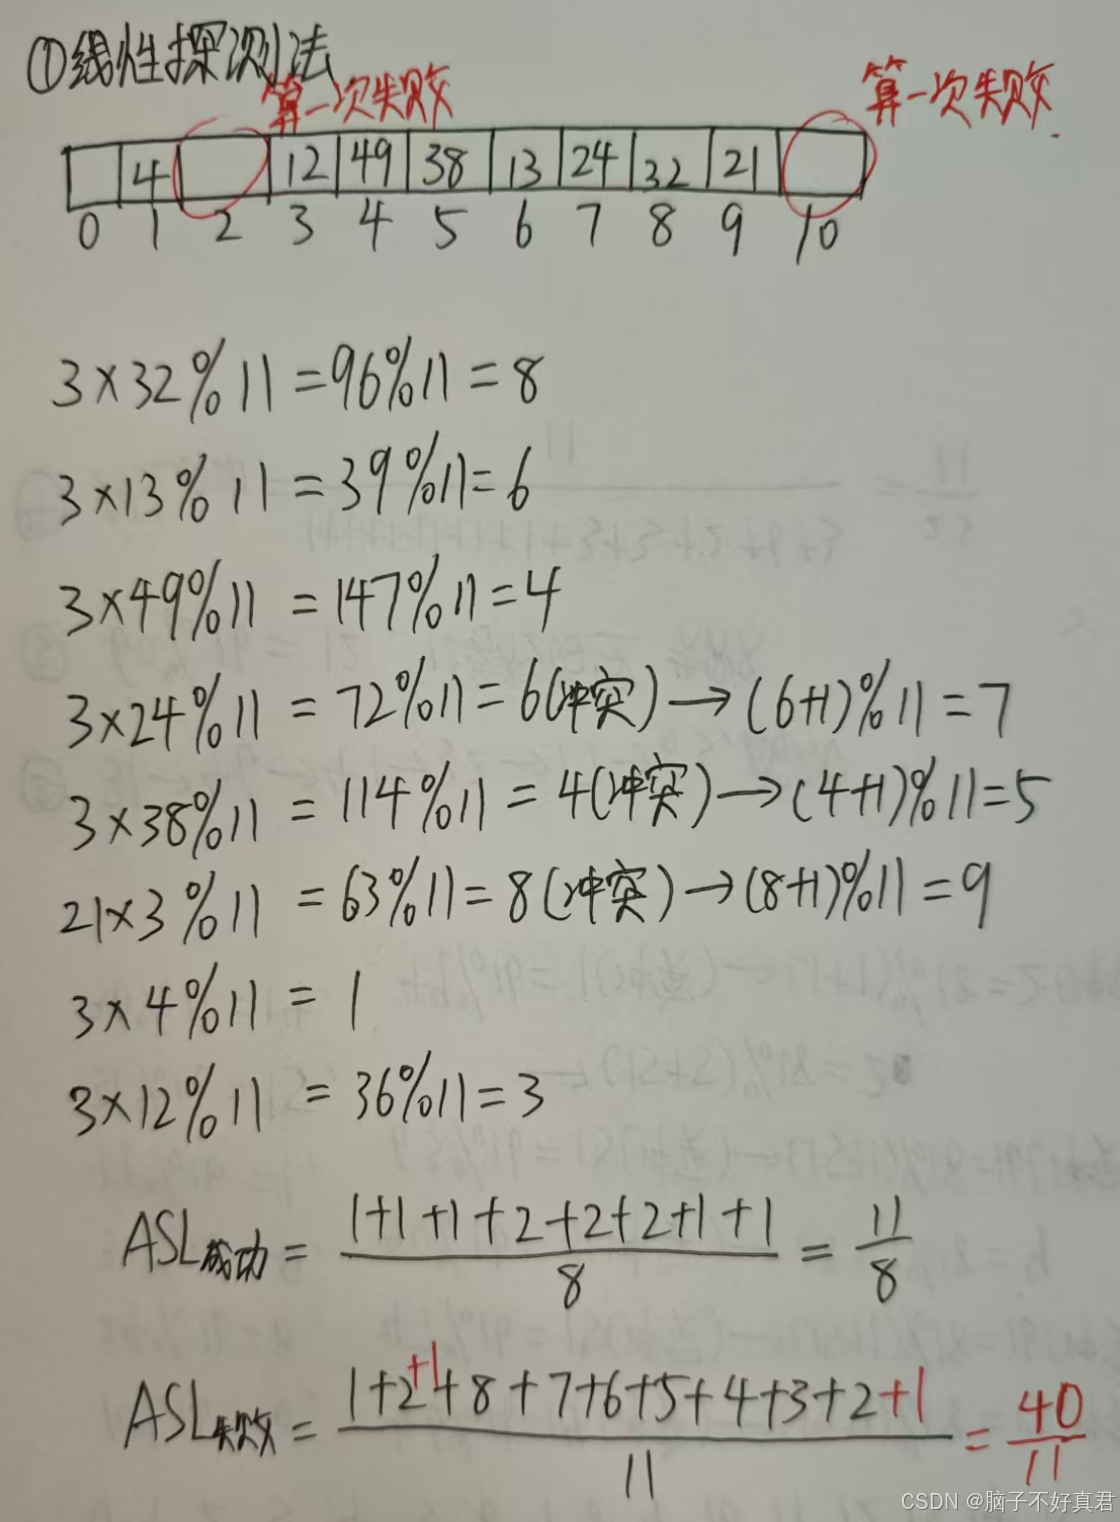 ①线性探测法
算一次失败 算一次失败.
4 12 49 38 13 24 32 21
0 1 2 3 4 5 6 7 8 9 10
3×32%11=96%11=8
3×13%11=39%11=6
3×49%11=147%11=4
3×24%11=72%11=6(冲突)→(6+1)%11=7
3×38%11=114%11=4(冲突)→(4+1)%11=5
21×3%11=63%11=8(冲突)→(8+1)%11=9
3×4%11=1
3×12%11=36%11=3
1+1+1+2+2+2+1+1 11
ASL成功= =
8 8
1+2+1+8+7+6+5+4+3+2+1 40
ASL失败= =
11 11
CSDN @脑子不好真君